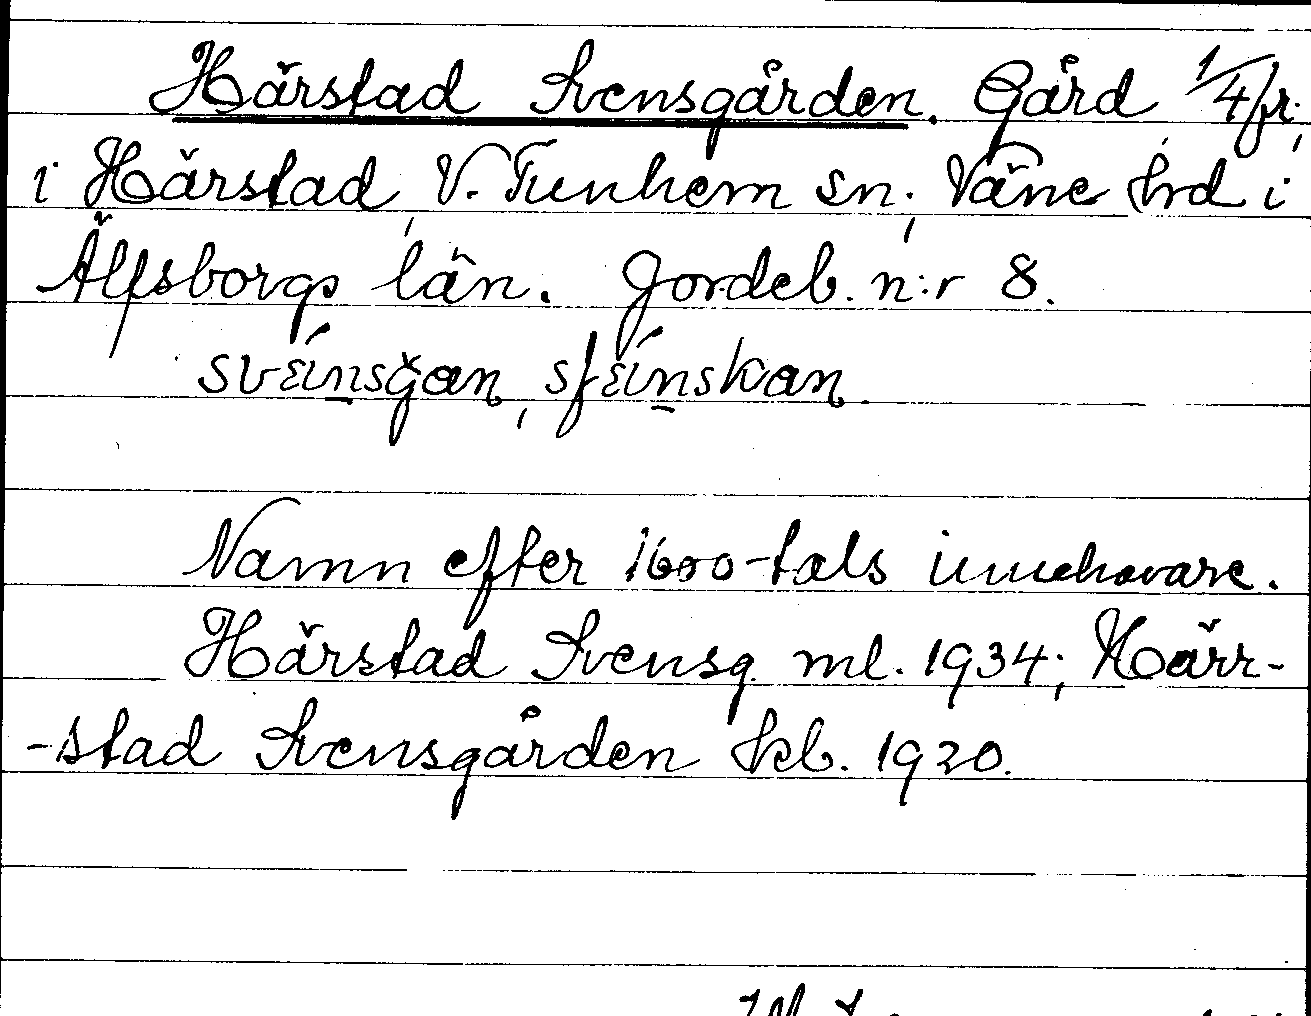 Härstad Svensgården. Gård 1/4 fr.,
i Härstad, V. Tunhem sn; Väne hrd i
Älfsborgs län. Jordeb. n:r 8.
svɛ́insğan, sfɛ́inskan.
Namn efter 1600-tals innehavare.
Härstad Svensg. ml. 1934; Härr-
-stad Svensgården kb. 1920.